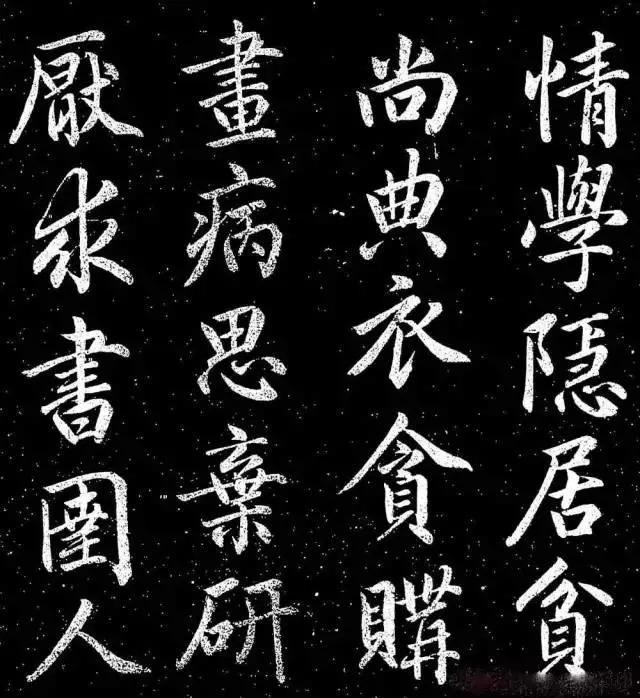 情學隱居貧
尚典衣貪購
畫病思棄研
厭求書人